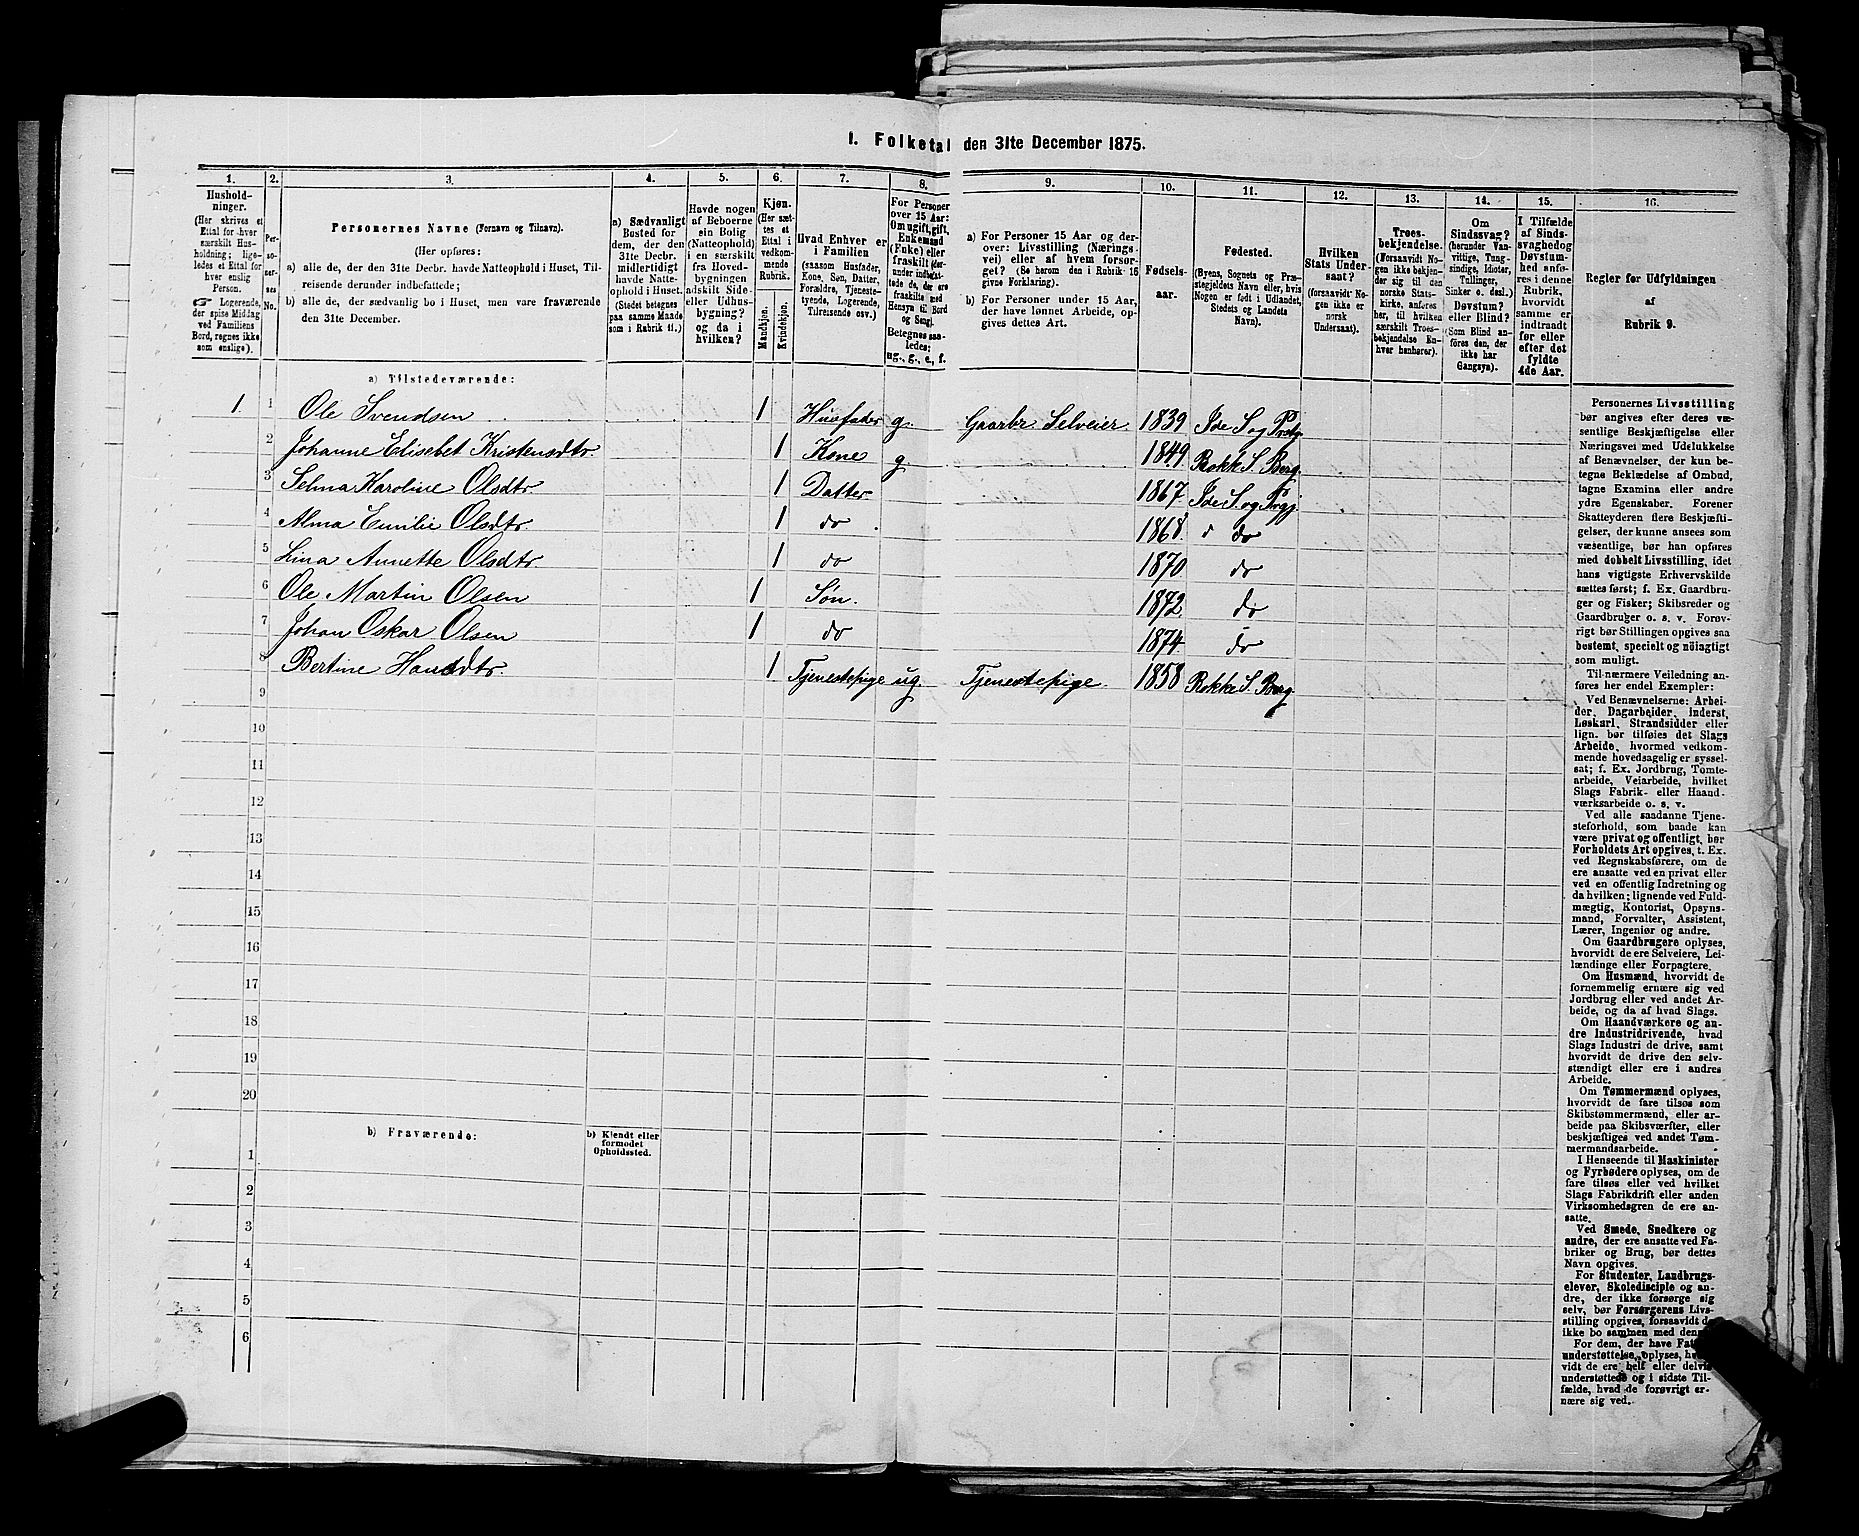 1. Folketal den 31te December 1875.
1. 2. 3. 4. 5. 6. 7. 8. 9. 10. 11. 12. 13. 14. 15. 16.
Hushold-
ninger.
(Her skrives et
Ettal for hver
særskilt Hus-
holdning; lige-
ledes et Ettal for
hver enslig
Person.
☞ Logerende,
der spise Middag
ved Familiens
Bord, regnes ikke
som enslige).
Per-
so-
ner-
nes
No.
Personernes Navne (Fornavn og Tilnavn).
(Her opføres:
a) alle de, der den 31te Decbr. havde Natteophold i Huset, Til-
reisende derunder indbefattede;
b) alle de, der sædvanlig bo i Huset, men vare fraværende
den 31te December.
a) Sædvanligt
Bosted for
dem, der den
31te Decbr.
midlertidigt
havde Natte-
ophold i Huset.
(Stedet betegnes
paa samme Maade
som i Rubrik 11.)
Havde nogen
af Beboerne
sin Bolig
(Natteophold)
i en særskilt
fra Hoved-
bygningen
adskilt Side-
eller Udhus-
bygning?
og da i
hvilken?
Kjøn.
(Her sæt-
tes et
Ettal i
vedkom-
mende
Rubrik.
Mandkjøn.
Kvindekjøn.
Hvad Enhver er
i Familien
(saasom Husfader,
Kone, Søn, Datter,
Forældre, Tjeneste-
tyende, Logerende,
Tilreisende osv.)
For Personer
over 15 Aar:
Om ugift, gift,
Enkemand
(Enke) eller
fraskilt (der-
under indbefat-
tede de, der ere
fraskilte med
Hensyn til Bord
og Seng).
Betegnes saa-
ledes:
ug., g., e., f.
a) For Personer 15 Aar og der-
over: Livsstilling (Nærings-
vei) eller af hvem forsør-
get? (Se herom den i Rubrik 16
givne Forklaring).
b) For Personer under 15 Aar,
der have lønnet Arbeide, op-
gives dettes Art.
Fødsels-
aar.
Fødested.
(Byens, Sognets og Præ-
stegjeldets Navn eller, hvis
Nogen er født i Udlandet,
Stedets og Landets
Navn).
Hvilken
Stats Under-
saat?
(forsaavidt No-
gen ikke er
norsk
Undersaat).
Troes-
bekjendelse.
(Forsaavidt No-
gen ikke bekjen-
der sig til den
norske Stats-
kirke, anføres
her, til hvilken
særskilt Troes-
bekjendelse En-
hver henhører).
Om
Sindssvag?
(herunder Van-
vittige, Tung-
sindige, Idioter,
Tullinger,
Sinker o. desl.)
Døvstum?
eller Blind?
(Som Blind an-
føres den, der
ikke har
Gangsyn).
I Tilfælde
af Sinds-
svaghed og
Døvstum-
hed anfø-
res i denne
Rubrik,
hvorvidt
samme er
indtraadt
før eller
efter det
fyldte
4de Aar.
Regler for Udfyldningen
af
Rubrik 9.
a) Tilstedeværende:
1. 1 Ole Svendsen 1 Husfader g. Gaardbr Selveier 1839 Ide S og Prstgj
2 Johanne Elisebet Kristensdtr. 1 Kone g 1849 Rokke S. Berg
3 Selma Karoline Olsdtr 1 Datter 1867 Ide S. og Prgj.
4 Alma Emilie Olsdtr 1 do 1868 do
5 Lina Annette Olsdtr 1 do 1870 do
6 Ole Martin Olsen 1 Søn. 1872 do
7 Johan Oskar Olsen 1 do 1874 do
8 Bertine Hansdtr. 1 Tjenestepige ug. Tjenestepige. 1858 Rokke S. Berg
9
10
11
12
13
14
15
16
17
18
19
20
b) Fraværende: b) Kjendt eller
formodet
Opholdssted.
1
2
3
4
5
6
Personernes Livsstilling
bør angives efter deres væ-
sentlige Beskjæftigelse eller
Næringsvei med Udelukkelse
af Benævnelser, der kun be-
tegne Beklædelse af Ombud,
tagne Examina eller andre
ydre Egenskaber. Forener
Skatteyderen flere Beskjæfti-
gelser, der kunne ansees som
væsentlige, bør han opføres
med dobbelt Livsstilling, idet
hans vigtigste Erhvervskilde
sættes først; f. Ex. Gaardbru-
ger og Fisker; Skibsreder og
Gaardbruger o. s. v. Forøv-
rigt bør Stillingen opgives saa
bestemt, specielt og nöiagtigt
som muligt.
Til nærmere Veiledning an-
føres her endel Exempler:
Ved Benævnelserne: Arbei-
der, Dagarbeider, Inderst,
Løskarl, Strandsidder eller
lign. bør tilføies det Slags
Arbeide, hvormed vedkom-
mende hovedsagelig er syssel-
sat; f. Ex. Jordbrug, Tomte-
arbeide, Veiarbeide, hvilket
Slags Fabrik- eller Haand-
værksarbeide o. s. v.
Ved alle saadanne Tjene-
steforhold, som baade kan
være privat og offentligt, bør
Forholdets Art opgives, t. Ex.
ved Regnskabsførere, om de
ere ansatte ved en privat eller
ved en offentlig Indretning og
da hvilken; lignende ved Fuld-
mægtig, Kontorist, Opsyns-
mand, Forvalter, Assistent,
Lærer, Ingeniør og andre.
Om Gaardbrugere oplyses,
hvorvidt de ere Selveiere, Lei-
lændinge eller Forpagtere.
Om Husmænd, hvorvidt de
fornemmelig ernære sig ved
Jordbrug eller ved andet Ar-
beide, og da af hvad Slags.
Om Haandværkere og an-
dre Industridrivende, hvad
Slags Industri de drive, samt
hvorvidt de drive den selv-
stændigt eller ere i andres
Arbeide.
Om Tømmermænd oplyses,
hvorvidt de fare tilsøs som
Skibstømmermænd, eller ar-
beide paa Skibsværfter, eller
beskjæftiges ved andet Tøm-
mermandsarbeide.
I Henseende til Maskinister
og Fyrbødere oplyses, om de
fare tilsøs eller ved hvilket
Slags Fabrikdrift eller anden
Virksomhedsgren de ere an-
satte.
Ved Smede, Snedkere og
andre, der ere ansatte ved Fa-
briker og Brug, bør dettes
Navn opgives.
For Studenter, Landbrugs-
elever, Skoledisciple og an-
dre, der ikke forsørge sig
selv, bør Forsørgerens Livs-
stilling opgives, forsaavidt de
ikke bo sammen med denne.
For dem, der have
understøttelse, oplyses,
vidt de ere helt eller delvis
understøttede og i sidste Til-
fælde, hvad de forøvrigt er-
nære sig ved.